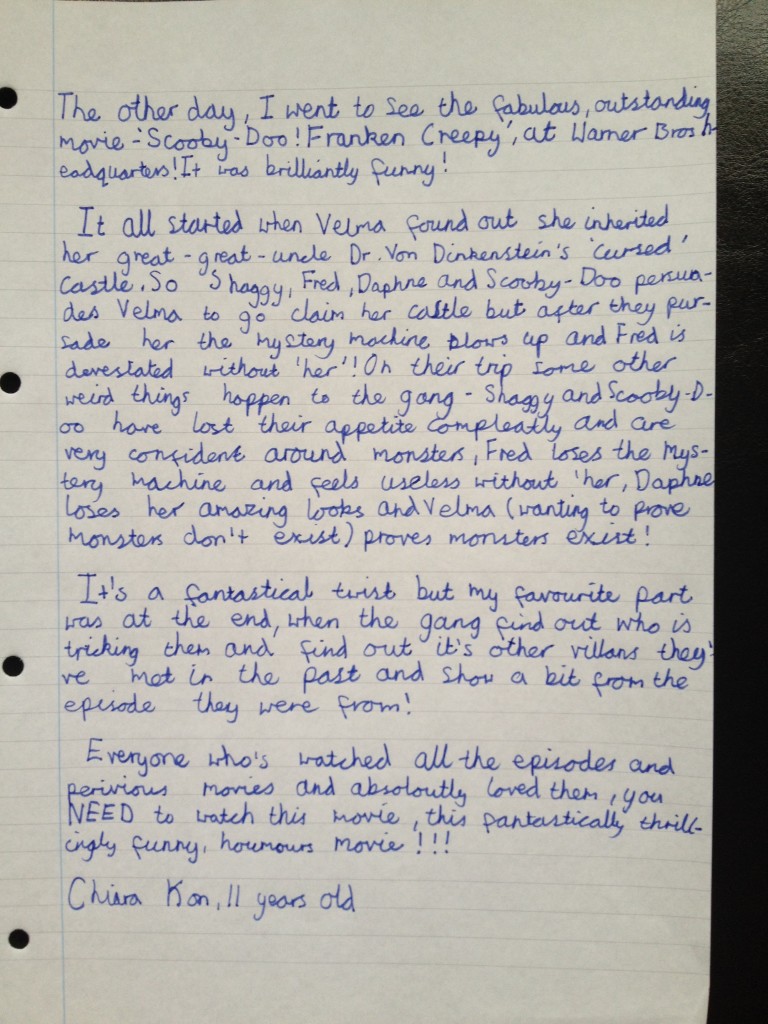 The other day, I went to see the fabulous, outstanding
movie - 'Scooby-Doo! Franken Creepy', at Warner Bros h-
eadquarters! It was brilliantly funny!
It all started when Velma found out she inherited
her great-great-uncle Dr. Von Dinkenstein's 'cursed'
castle. So Shaggy, Fred, Daphne and Scooby-Doo persua-
des Velma to go claim her castle but after they pur-
sade her the mystery machine blows up and Fred is
devestated without 'her'! On their trip some other
weird things happen to the gang - Shaggy and Scooby-D-
oo have lost their appetite compleatly and are
very confident around monsters, Fred loses the mys-
tery machine and feels useless without 'her, Daphne
loses her amazing looks and Velma (wanting to prove
monsters don't exist) proves monsters exist!
It's a fantastical twist but my favourite part
was at the end, when the gang find out who is
tricking them and find out it's other villans they'
ve met in the past and show a bit from the
episode they were from!
Everyone who's watched all the episodes and
perivious movies and absoloutly loved them, you
NEED to watch this movie, this fantastically thrill-
ingly funny, houmours movie!!!
Chiara Kon, 11 years old